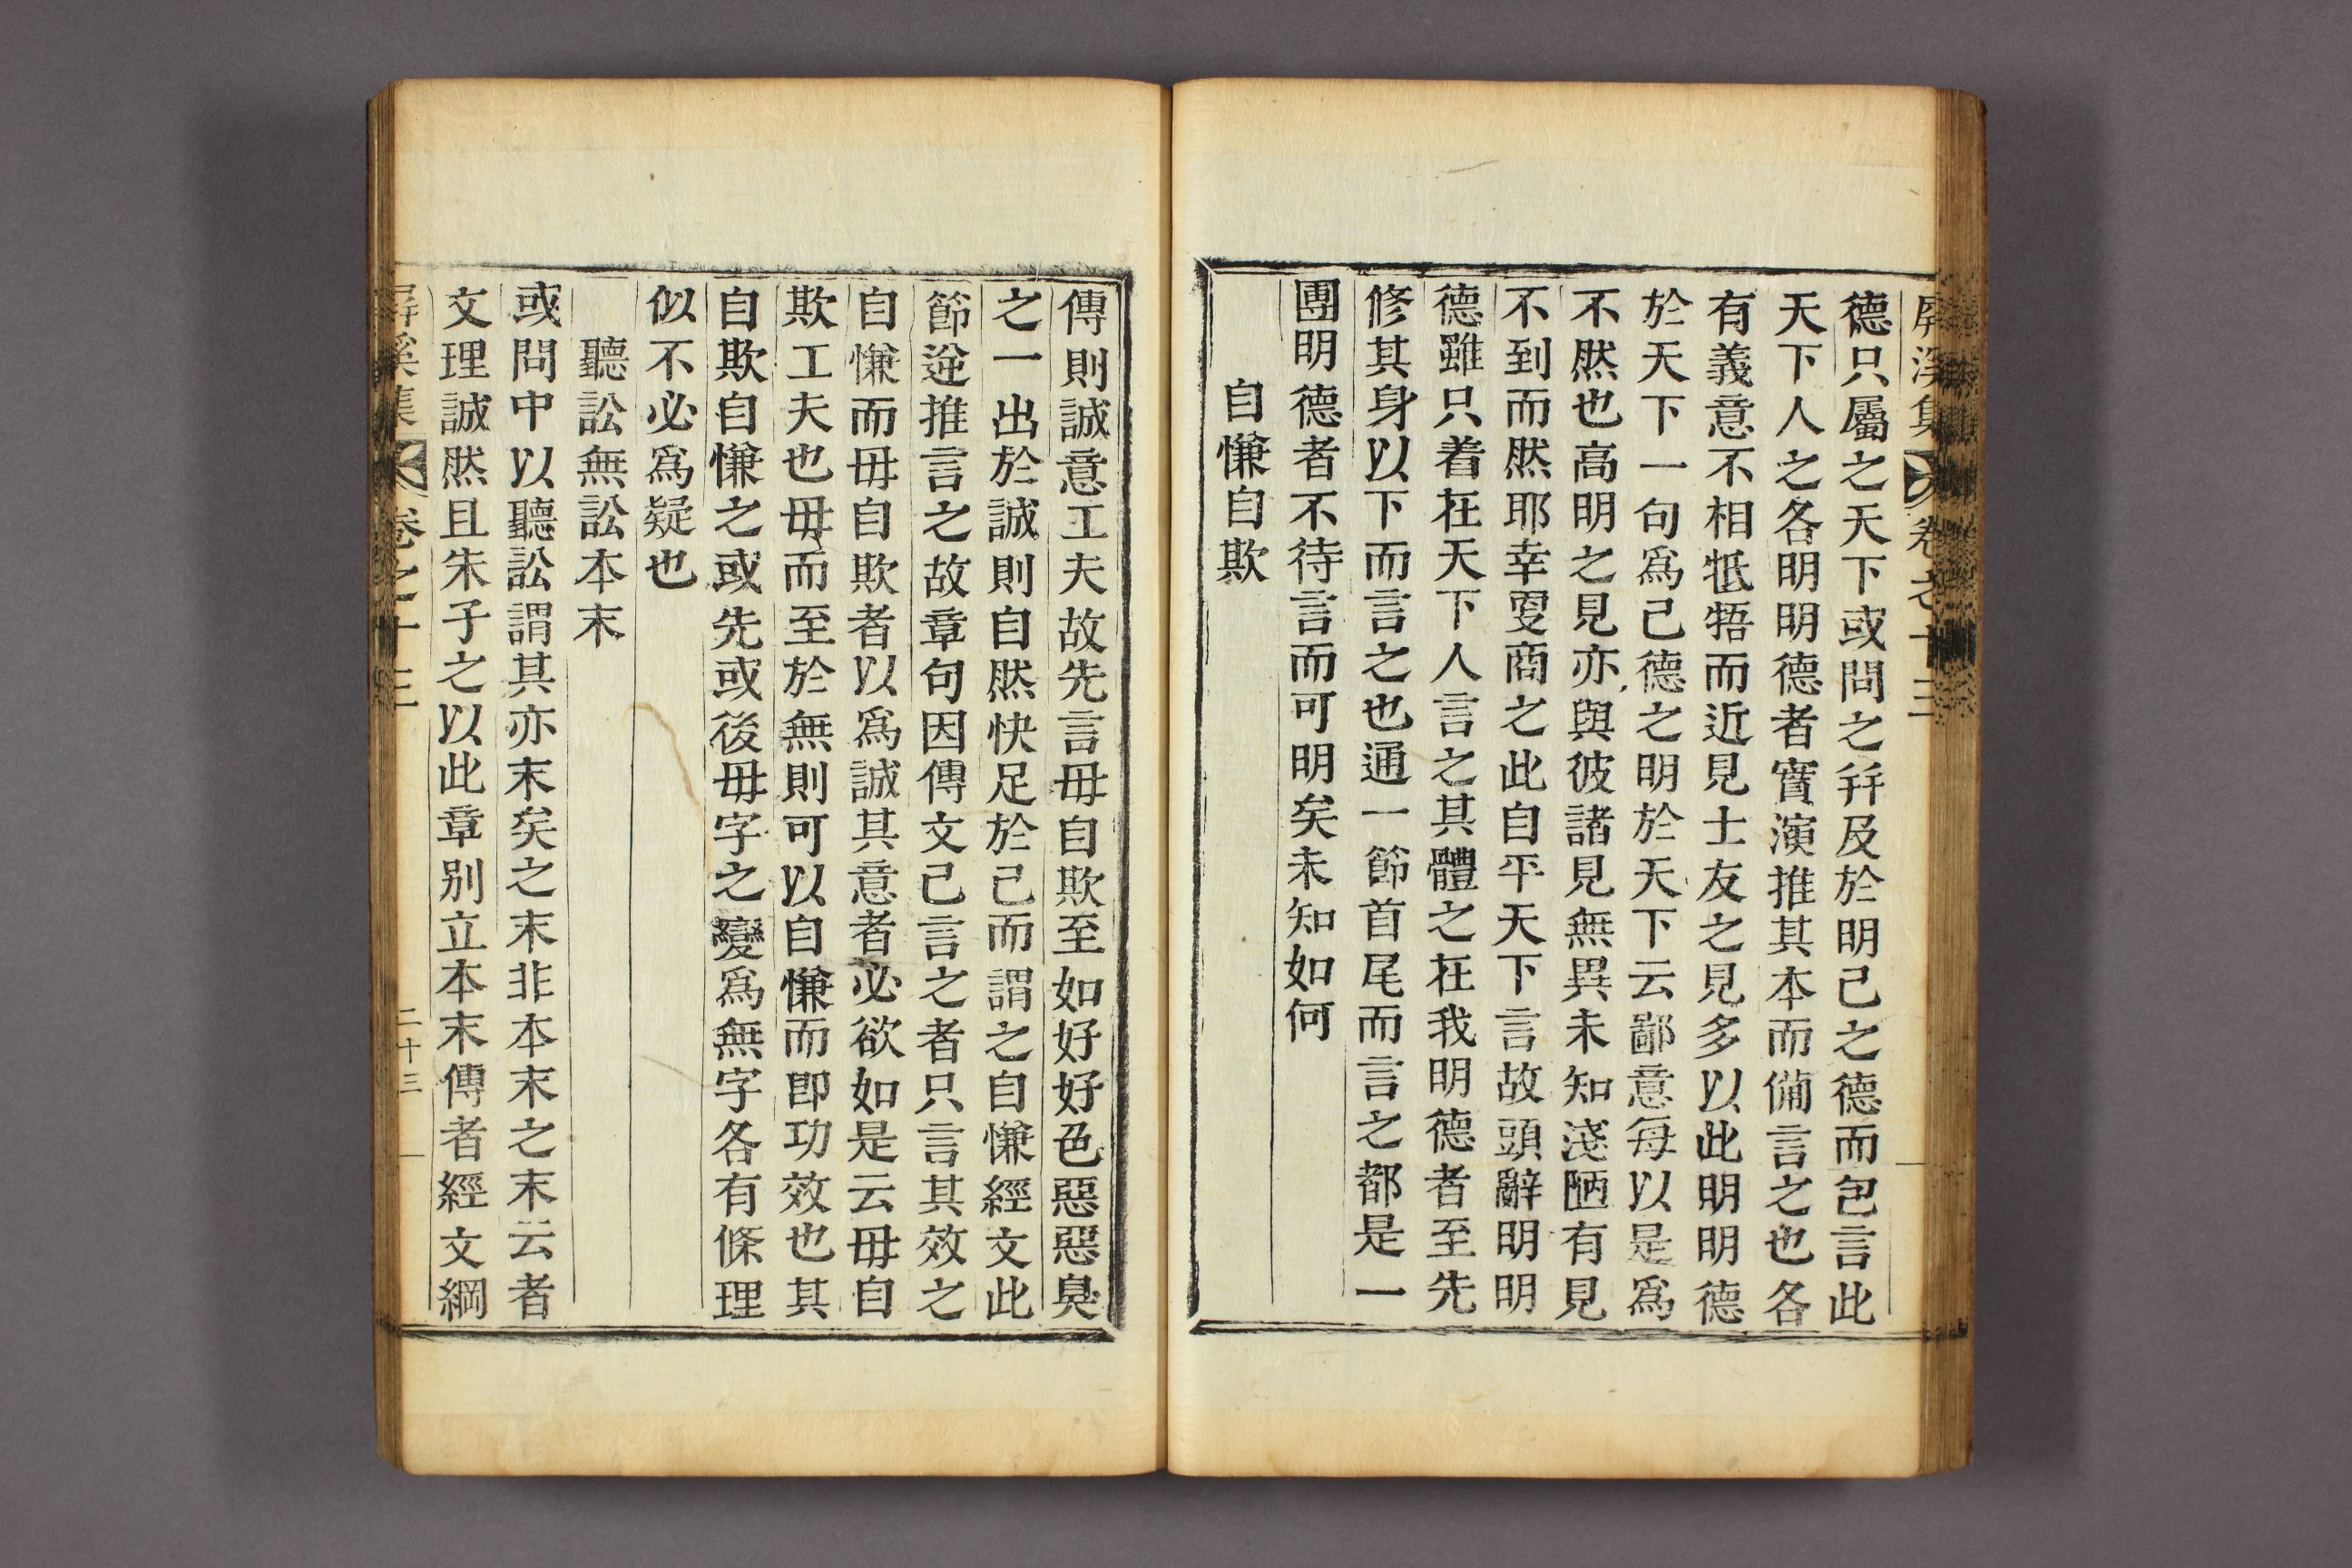 屏溪集 卷之十三
德只屬之天下或問之幷及於明己之德而包言此
天下人之各明明德者實演推其本而備言之也各
有義意不相牴牾而近見士友之見多以此明明德
於天下一句爲己德之明於天下云鄙意每以是爲
不然也高明之見亦與彼諸見無異未知淺陋有見
不到而然耶幸更商之此自平天下言故頭辭明明
德雖只着在天下人言之其體之在我明德者至先
修其身以下而言之也通一節首尾而言之都是一
團明德者不待言而可明矣未知如何
自慊自欺
傳則誠意工夫故先言毋自欺至如好好色惡惡臭
之一出於誠則自然快足於己而謂之自慊經文此
節逆推言之故章句因傳文已言之者只言其效之
自慊而毋自欺者以爲誠其意者必欲如是云毋自
欺工夫也毋而至於無則可以自慊而卽功效也其
自欺自慊之或先或後毋字之變爲無字各有條理
似不必爲疑也
聽訟無訟本末
或問中以聽訟謂其亦末矣之末非本末之末云者
文理誠然且朱子之以此章別立本末傳者經文綱
屏溪集 卷之十三 二十三